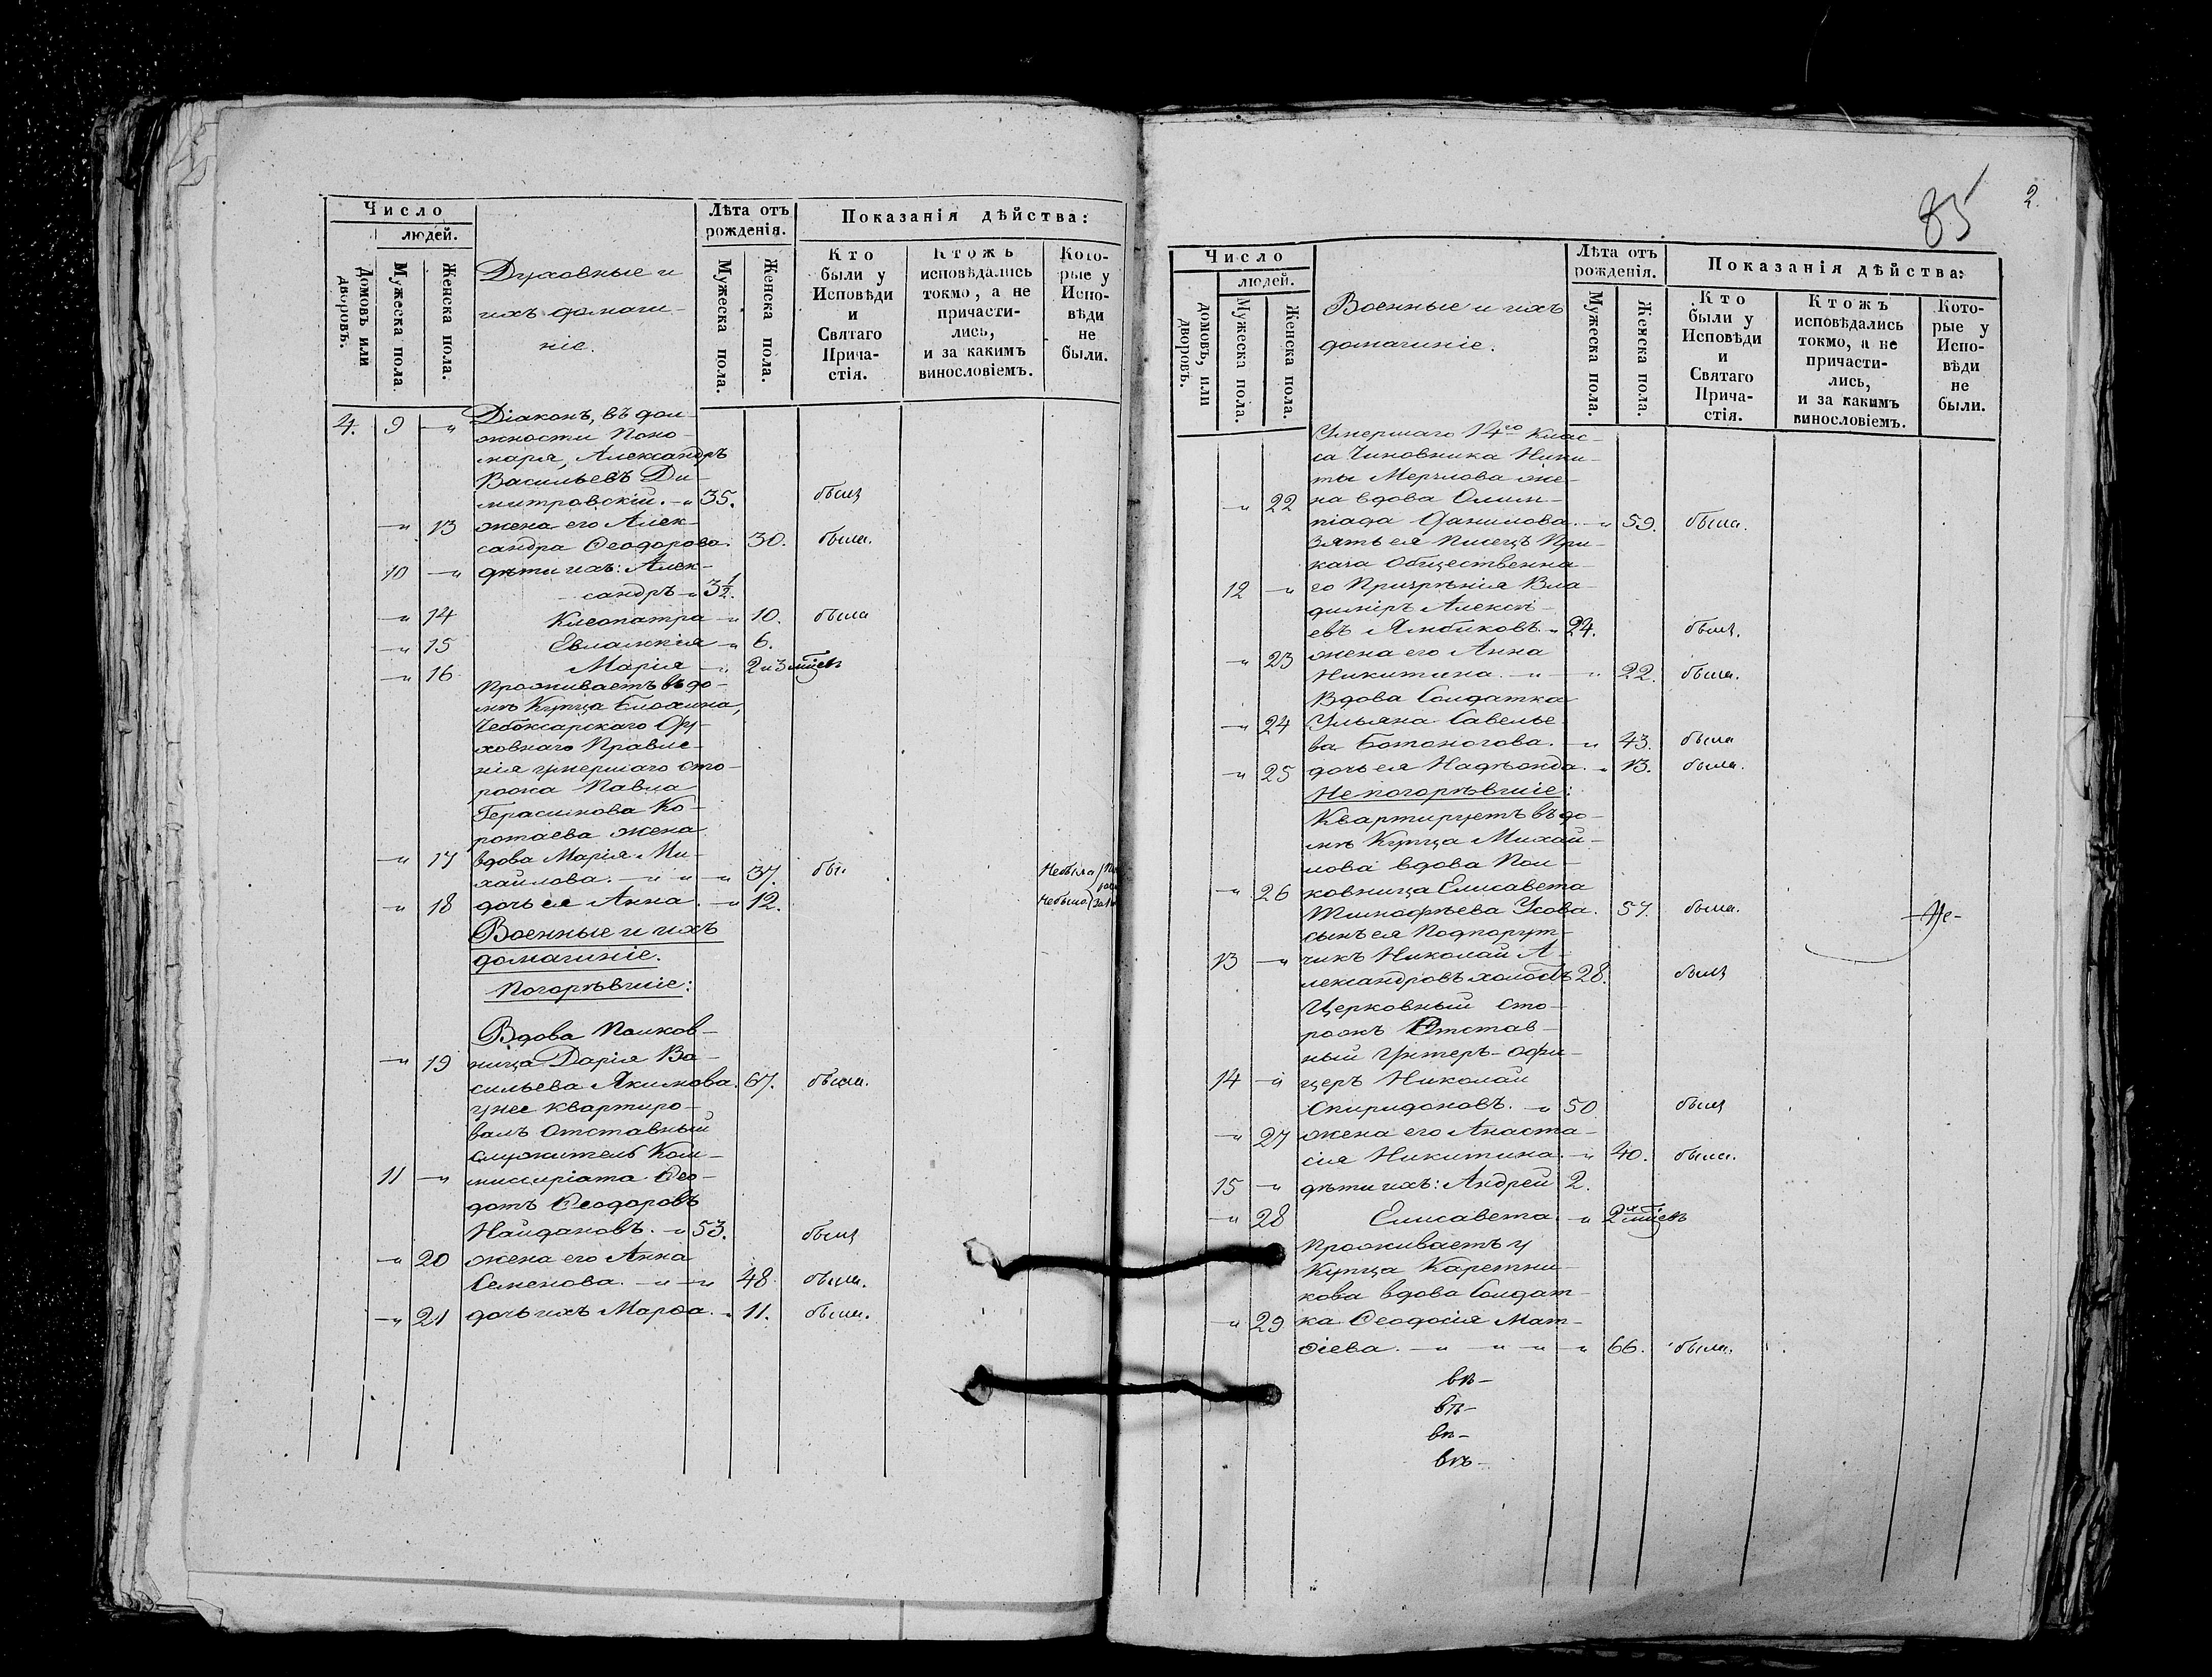 Число
людей.
Домовъ или дворовъ.
Мужеска пола.
Женска пола.
Духовные и
ихъ домаш-
ніе.
Лѣта отъ
рожденія.
Мужеска пола.
Женска пола.
Показанія дѣйства:
Кто
были у
Исповѣди
и
Святаго
Прича-
стія.
Ктожъ
исповѣдались
токмо, а не
причасти-
лись,
и за какимъ
винословіемъ.
Кото-
рые у
Испо-
вѣди
не
были.
4. 9 -„ Діаконъ, въ дол-
жности Поно-
маря, Александръ
Васильевъ Ди-
митровскій. -„ 35. былъ
-„ 13 жена его Алек-
сандра Ѳеодорова. 30. была.
10 -„ дѣти ихъ: Алек-
сандръ -„ 3½.
-„ 14 Клеопатра -„ 10. была
-„ 15 Евлампія -„ 6.
-„ 16 Марія -„ 2 и 3 мѣсц
Проживаетъ въ до-
мѣ Купца Блохина,
Чебоксарскаго Ду-
ховнаго Правле-
нія умершаго сто-
рожа Павла
Герасимова Ко-
ротаева жена
-„ 17 вдова Марія Ми-
хайлова. -„ -„ -„ 37. бы. Небыла
-„ 18 дочь ея Анна -„ 12. небыла
Военные и ихъ
домашніе.
Погорѣвшіе:
Вдова Полков-
-„ 19 ница Дарія Ва-
сильева Якимова. 67. была.
у нее квартиро-
валъ отставный
служитель Ком-
11 -„ миссаріата Ѳео-
дотъ Ѳеодоровъ
Найдановъ. -„ 53. былъ
-„ 20 жена его Анна
Семенова. -„ -„ 48. была.
-„ 21 дочь ихъ Марѳа. -„ 11. была.
85
2.
Число
людей.
домовъ, или дворовъ.
Мужеска пола.
Женска пола.
Военные и ихъ
домашніе.
Лѣта отъ
рожденія.
Мужеска пола.
Женска пола.
Показанія дѣйства:
Кто
были у
Исповѣди
и
Святаго
Прича-
стія.
Ктожъ
исповѣдались
токмо, а не
причасти-
лись,
и за какимъ
винословіемъ.
Кото-
рые у
Испо-
вѣди
не
были.
Умершаго 14го Клас-
са Чиновника Ники-
ты Мерчлова же-
-„ 22 на вдова Олим-
піада Данилова. -„ 59. была.
Зять ея Писецъ При-
каза Общественна-
12 -„ го Призрѣнія Вла-
диміръ Алексѣ-
евъ Ямбиковъ. -„ 24. былъ.
-„ 23 жена его Анна
Никитина. -„ -„ 22. была.
Вдова Солдатка
-„ 24 Ульяна Савелье-
ва Ботоногова. -„ 43. была
-„ 25 дочь ея Надѣжда. -„ 13. была.
Непогорѣвшіе:
Квартируетъ въ до-
мѣ Купца Михай-
лова вдова Пол-
-„ 26 ковница Елисавета
Тимофѣева Усова. 57. была. -Не-
сынъ ея Подпорут-
13 -„ чикъ Николай А-
лександровъ холостъ 28. былъ
Церковный сто-
рожъ Отстав-
ный унтеръ-офи-
14 -„ церъ Николай
Спиридоновъ. -„ 50 былъ
-„ 27 жена его Анаста-
сія Никитина. -„ 40. была.
15 -„ дѣти ихъ: Андрей 2.
-„ 28 Елисавета. -„ 2хъ мѣсцвъ
Проживаетъ у
Купца Каретни-
кова вдова Солдат-
-„ 29 ка Ѳеодосія Мат-
ѳіева. -„ -„ -„ -„ 66. была.